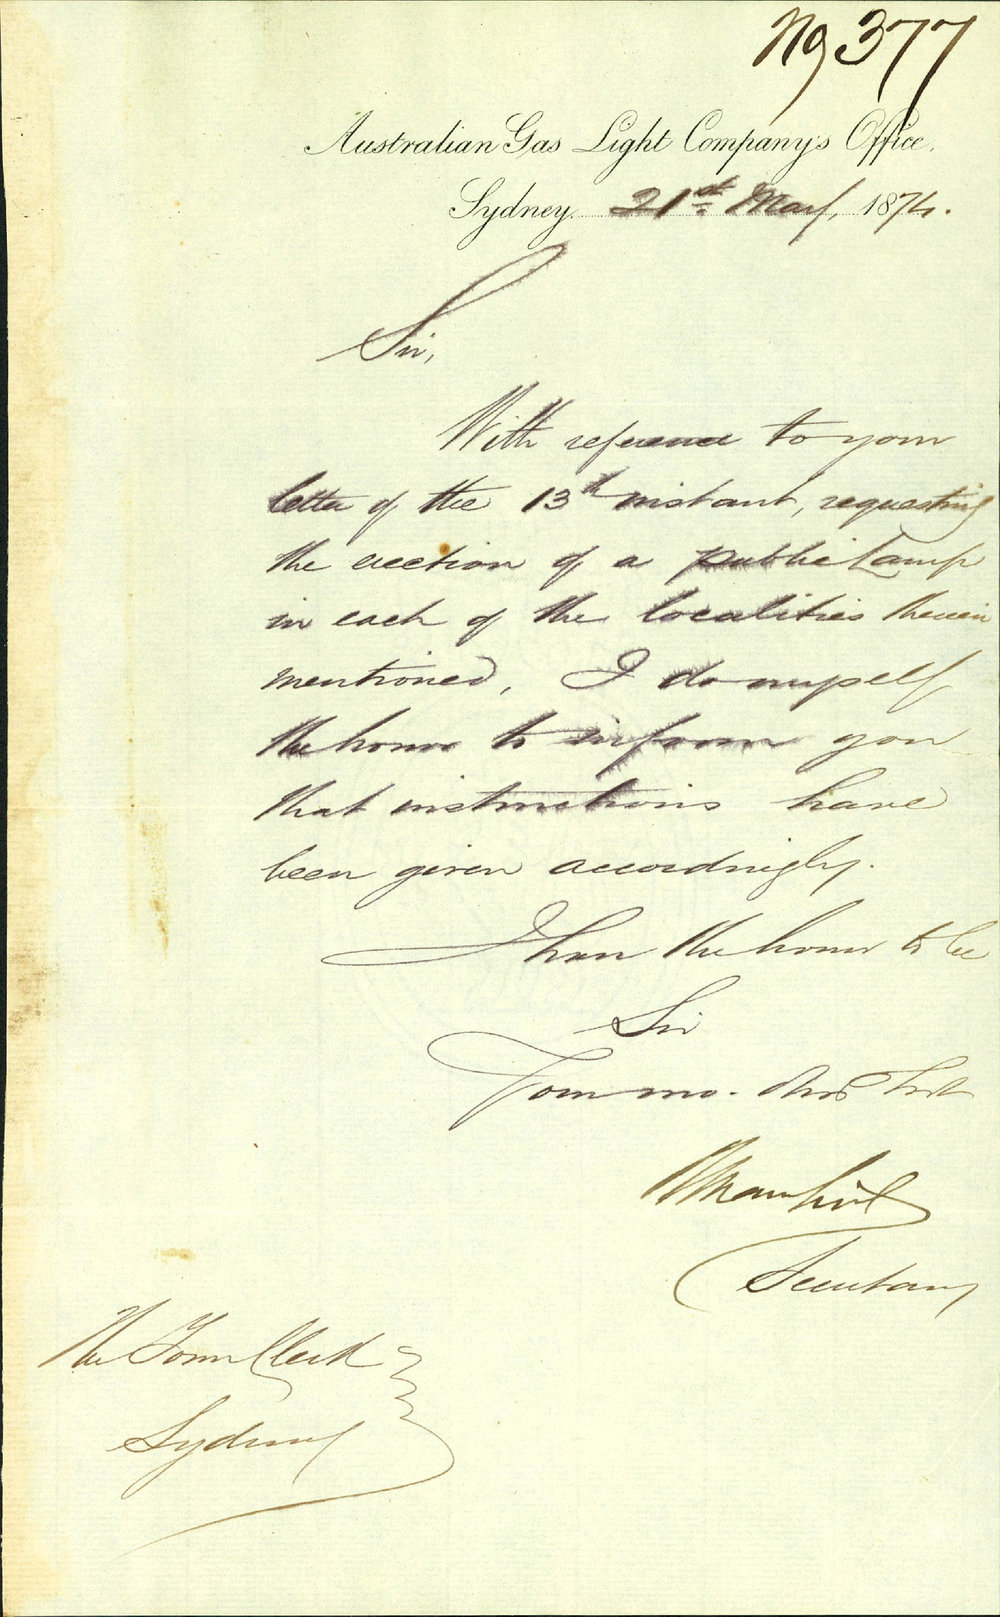 No 377
Australian Gas Light Company's Office.
Sydney 21st May, 1874.
Sir,
With reference to your
letter of the 13th instant, requesting
the erection of a public Lamp
in each of the localities therein
mentioned, I do myself
the honor to inform you
that instructions have
been given accordingly.
I have the honor to be
Sir
Your mo. Obed Servt
Secretary
The Town Clerk
Sydney